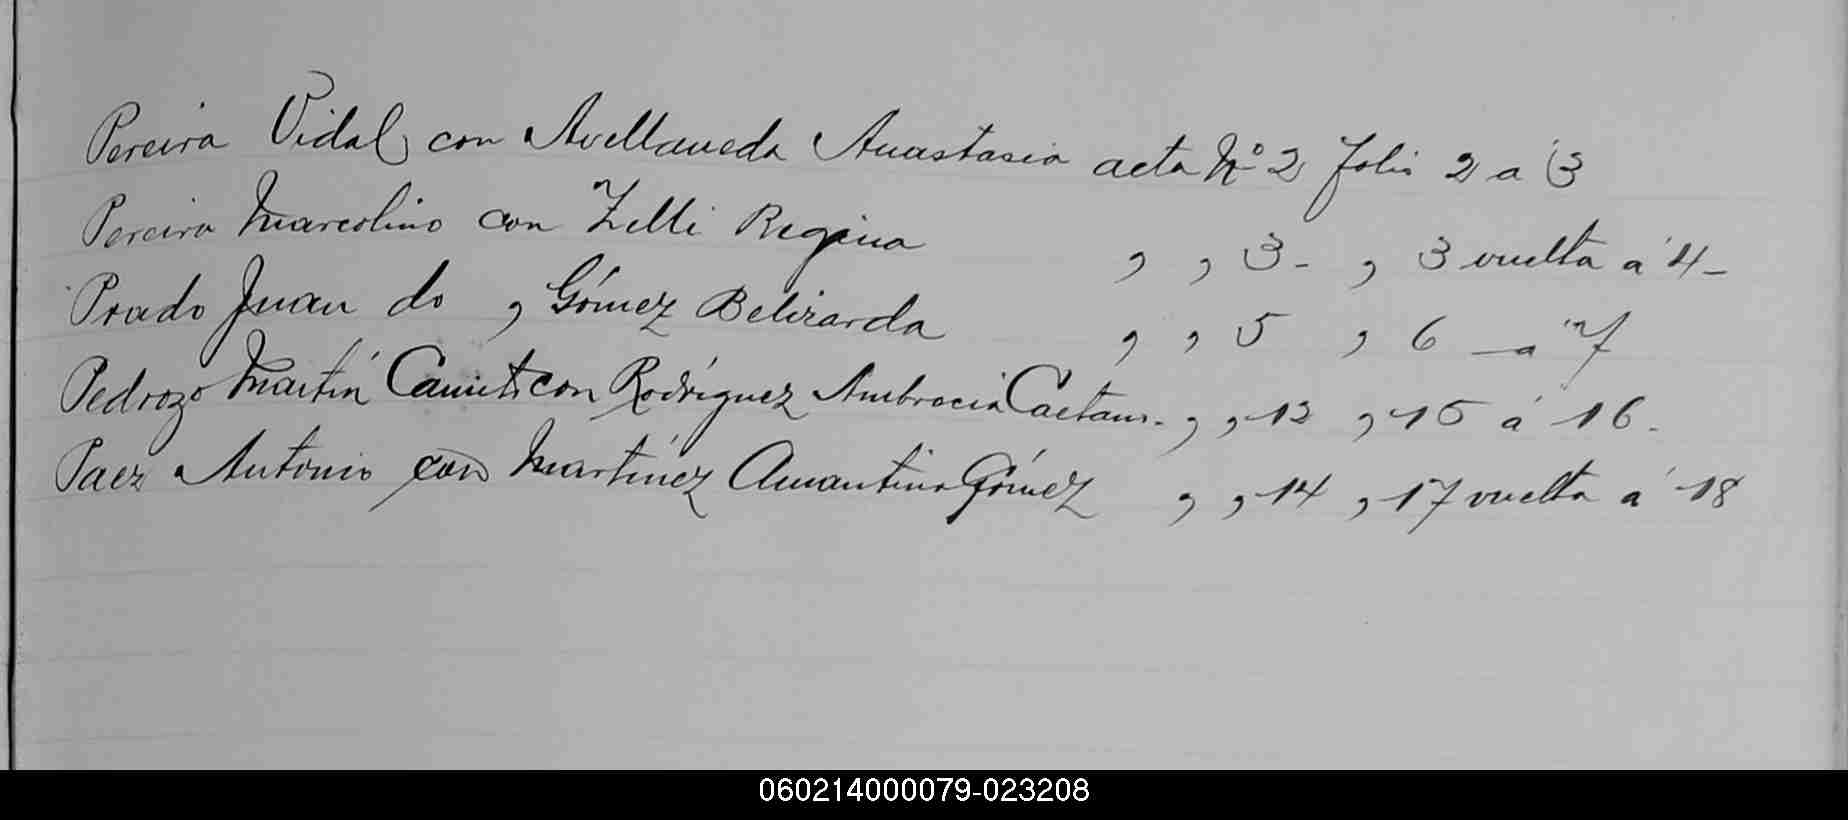 Pereira Vidal con Avellaneda Anastasia acta Nº 2 folio 2 a 3
Pereira Marcolino con Zelli Regina , , 3 - , 3 vuelta a 4 -
Prado Juan do , Gómez Belizarda , , 5 , 6 — a 7
Pedrozo Martín con Rodríguez Ambrocia Caetana . , , 12 , 15 á 16 .
Paez Antonio con Martínez Amantina Gómez , , 14 , 17 vuelta á 18
060214000079-023208